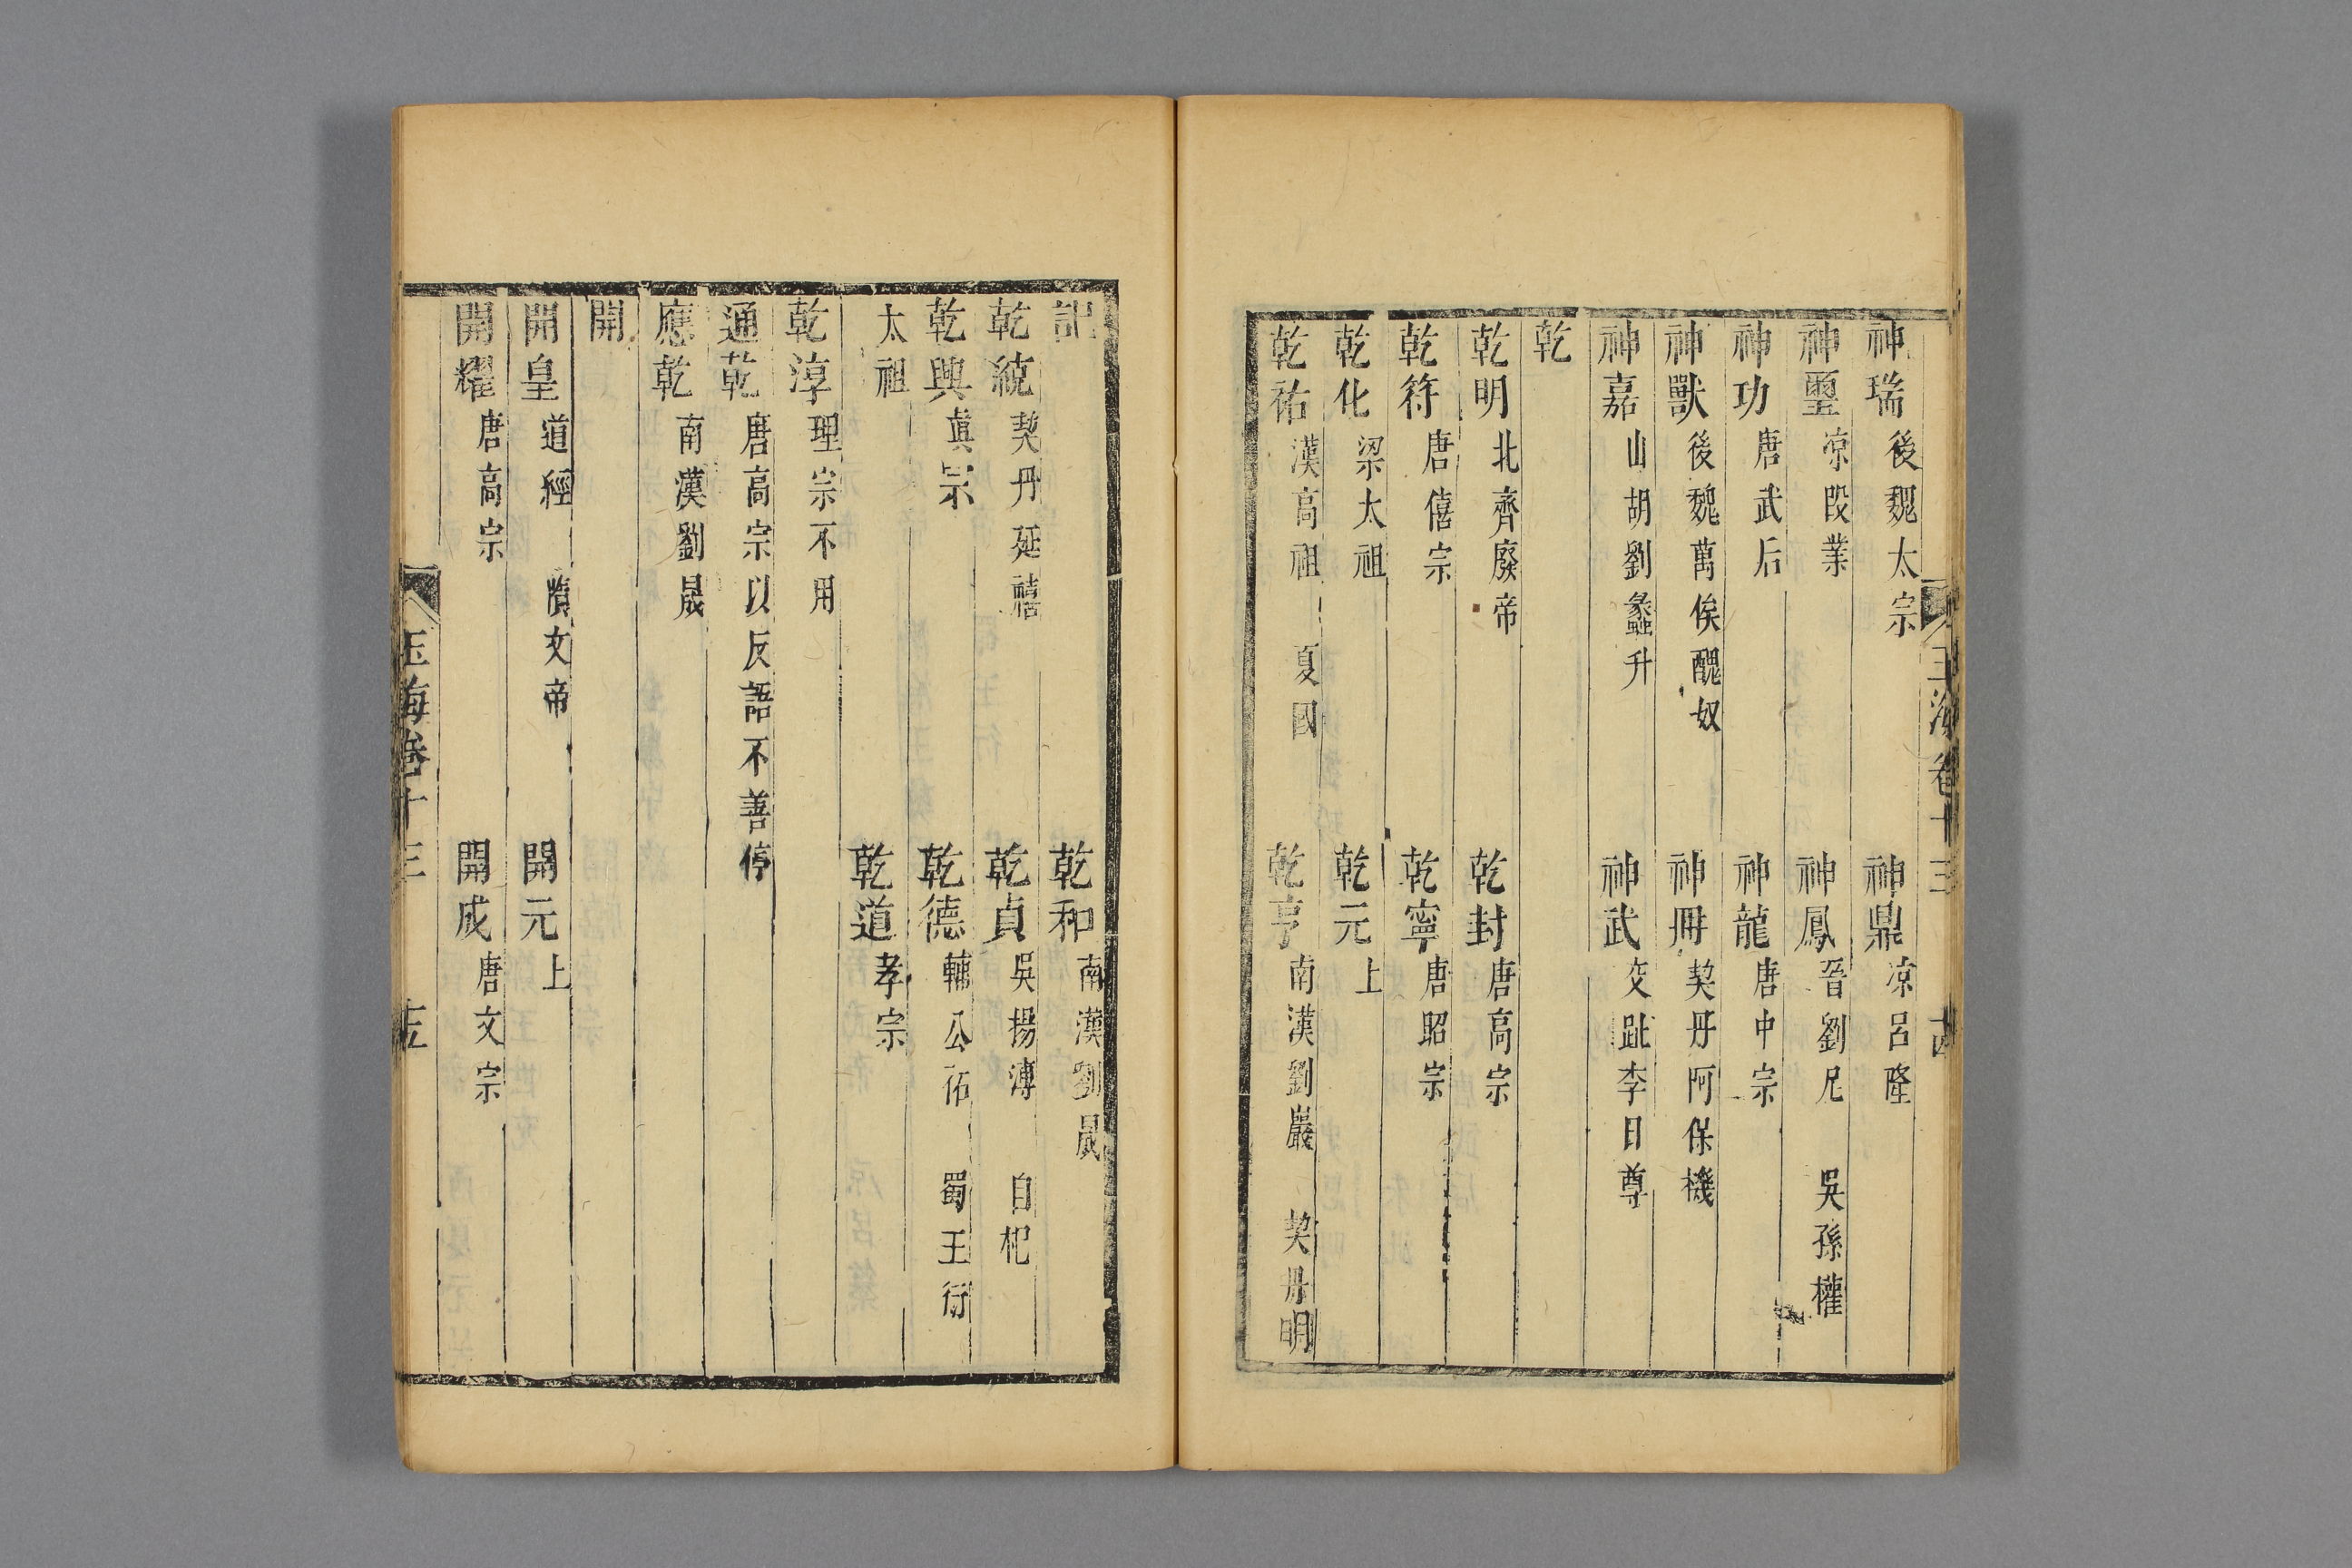 玉海卷十三 十四
神瑞後魏太宗 神鼎凉呂隆
神璽凉段業 神鳳晉劉尼 吳孫權
神功唐武后 神龍唐中宗
神獸後魏萬俟醜奴 神冊契丹阿保機
神嘉山胡劉蠡升 神武交趾李日尊
乾
乾明北齊廢帝 乾封唐高宗
乾符唐僖宗 乾寧唐昭宗
乾化梁太祖 乾元上
乾祐漢高祖 夏國 乾亨南漢劉巖 契丹明
記 乾和南漢劉晟
乾統契丹延禧 乾貞吳揚溥 白杞
乾興眞宗 乾德輔公祏 蜀王衍
太祖 乾道孝宗
乾淳理宗不用
通乾唐高宗以反語不善停
應乾南漢劉晟
開
開皇道經 隋文帝 開元上
開耀唐高宗 開成唐文宗
玉海卷十三 十五